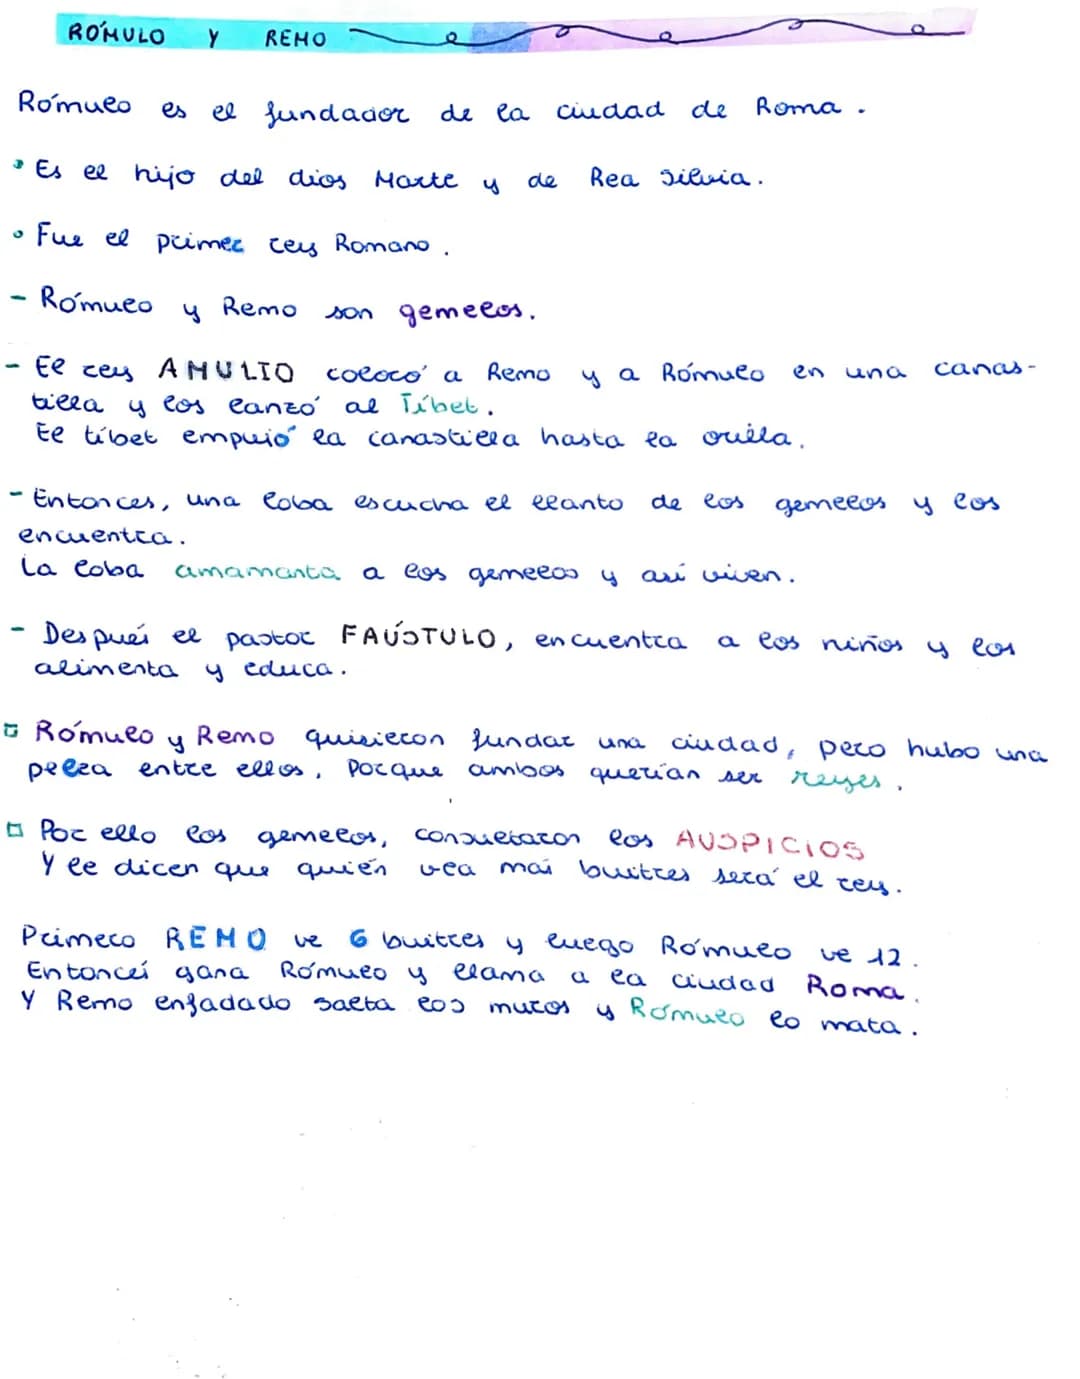 RÓMULO Y REMO
Rómulo es el fundador de la ciudad de Roma.
Es el hijo del dios Marte y de Rea Silvia.
Fue el primer rey Romano.
- Rómulo y Remo son gemelos.
- El rey AMULIO colocó a Remo y a Rómulo en una canas-
tilla y los lanzó al Tíbet.
El tíbet empujó la canastilla hasta la orilla.
- Entonces, una loba escucha el llanto de los gemelos y los
encuentra.
La loba amamanta a los gemelos y así viven.
- Después el pastor FAÚSTULO, encuentra a los niños y los
alimenta y educa.
Rómulo y Remo quisieron fundar una ciudad, pero hubo una
pelea entre ellos, porque ambos querían ser reyes.
Por ello los gemelos, consultaron los AUSPICIOS
Y le dicen que quién vea más buitres será el rey.
Primero REMO ve 6 buitres y luego Rómulo ve 12.
Entoncés gana Rómulo y llama a la ciudad Roma.
Y Remo enfadado salta los muros y Rómulo lo mata.